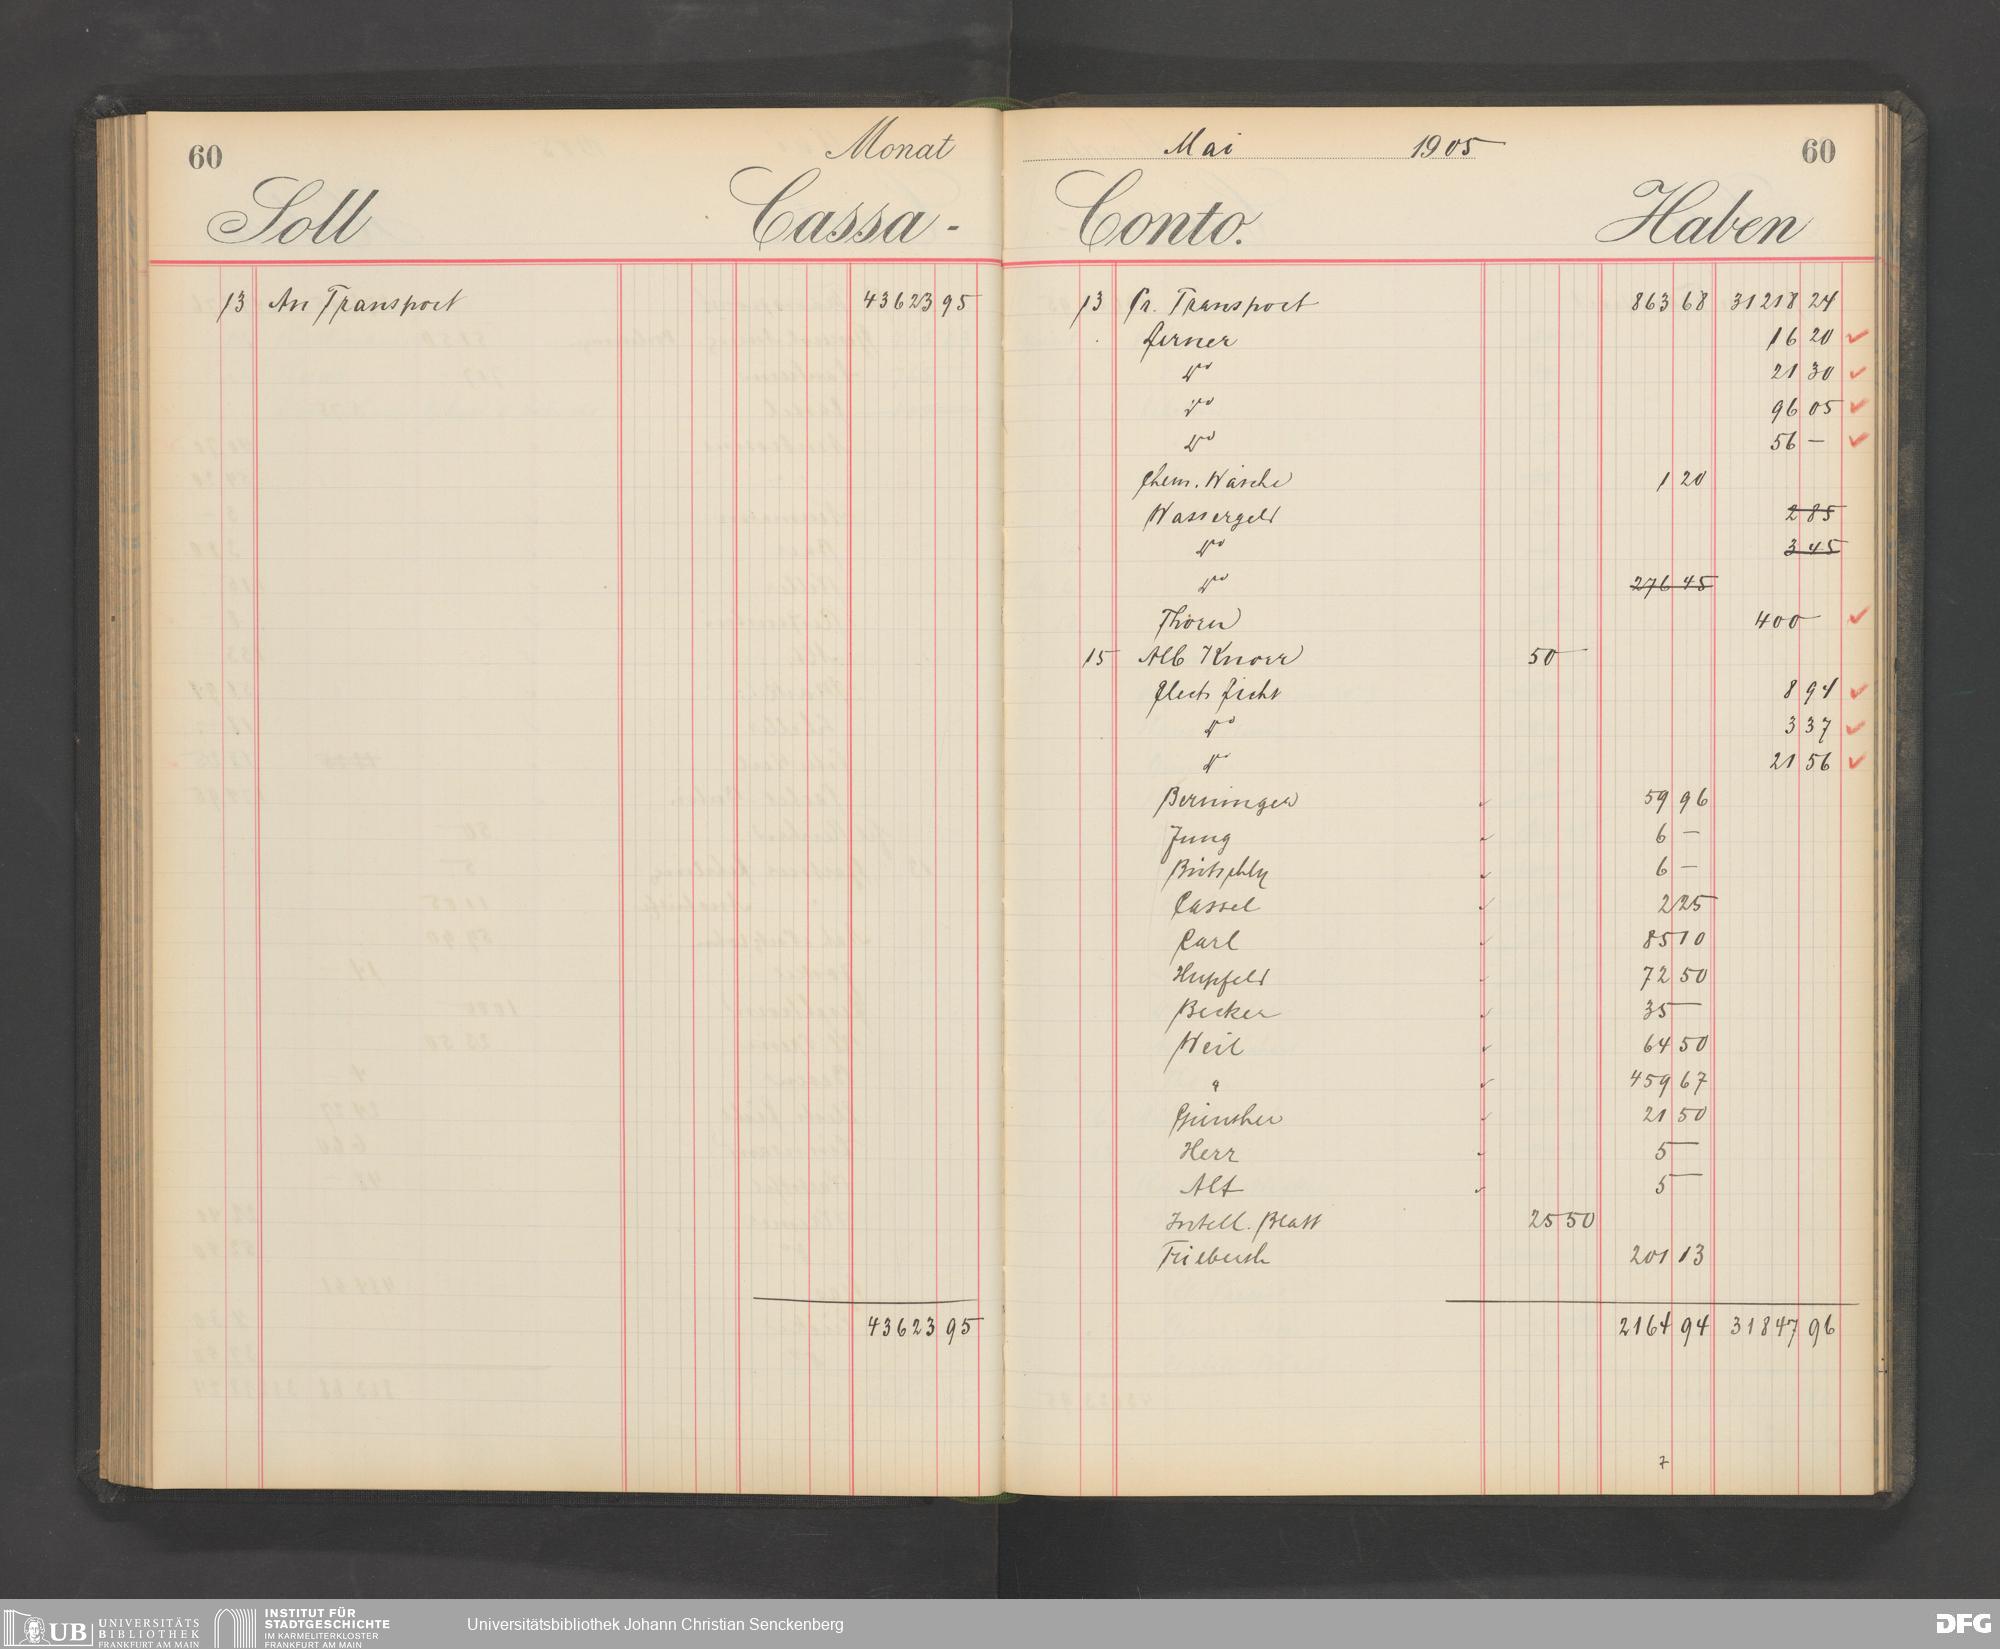 60 Monat
Soll Cassa-
13 An Transport 43623 95
43623 95
Mai 1905 60
Conto. Haben
13 Pr. Transport 863 68 31218 24
ferner 16 20
do 21 30
do 96 05
do 56 —
Chem. Wäsche 1 20
Wassergeld 2 85
do 3 45
do 276 45
Thorn 400 —
15 Alb Knorr 50 —
Elect. Licht 8 94
do 3 37
do 21 56
Berninger 59 96
Jung 6 —
Bütschly 6 —
Cassel 2 25
Carl 85 10
Hupfeld 72 50
Becker 35 —
Weil 64 50
" 459 67
Günther 21 50
Herr 5 —
Alt 5 —
Intell. Blatt 25 50
201 13
2164 94 31847 96
7
UB UNIVERSITÄTS
BIBLIOTHEK
FRANKFURT AM MAIN
INSTITUT FÜR
STADTGESCHICHTE
IM KARMELITERKLOSTER
FRANKFURT AM MAIN
Universitätsbibliothek Johann Christian Senckenberg
DFG